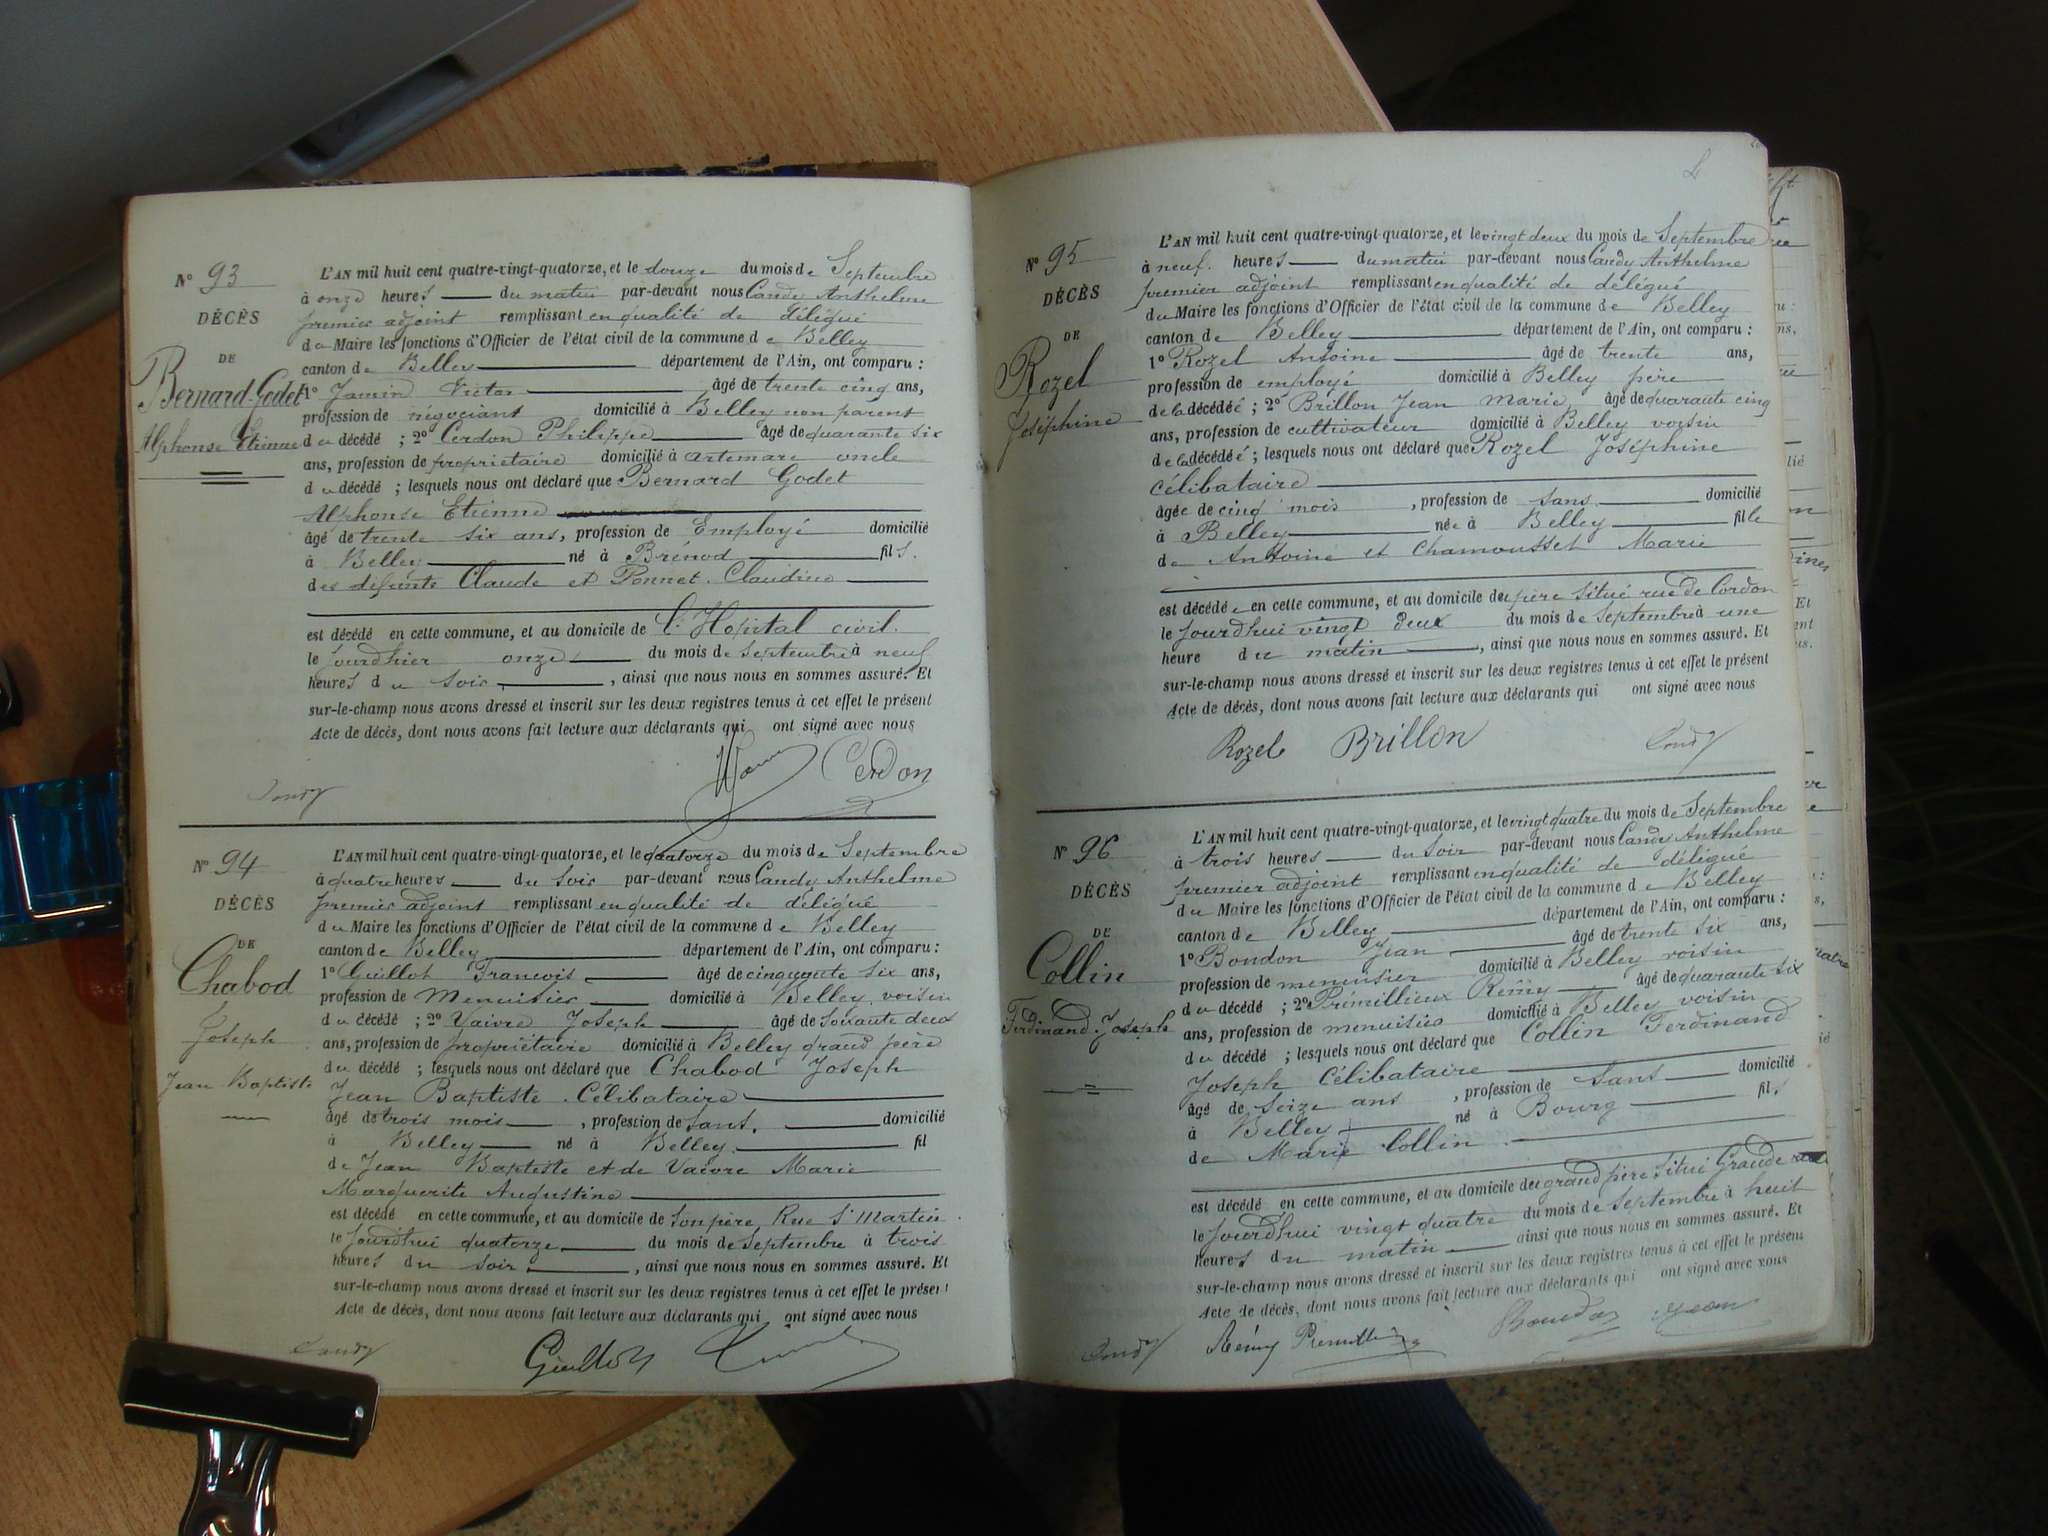 N° 93
DÉCÈS
DE
Bernard-Godet
Alphonse Etienne
L'AN mil huit cent quatre-vingt-quatorze, et le douze du mois de Septembre
à onze heures du matin par-devant nous Candy Anthelme
premier adjoint remplissant en qualité de délégué
du Maire les fonctions d'Officier de l'état civil de la commune de Belley
canton de Belley département de l'Ain, ont comparu :
1° Jamin Victor âgé de trente cinq ans,
profession de négociant domicilié à Belley non parent
du décédé ; 2° Cerdon Philippe âgé de quarante six
ans, profession de propriétaire domicilié à artemare oncle
du décédé ; lesquels nous ont déclaré que Bernard Godet
Alphonse Etienne
âgé de trente six ans, profession de Employé domicilié
à Belley né à Brénod fils.
des défunts Claude et Ponnet Claudine
est décédé en cette commune, et au domicile de l'Hopital civil.
le jourdhier onze du mois de septembre à neuf
heures du soir, ainsi que nous nous en sommes assuré. Et
sur-le-champ nous avons dressé et inscrit sur les deux registres tenus à cet effet le présent
Acte de décès, dont nous avons fait lecture aux déclarants qui ont signé avec nous
Cerdon
Candy
N° 94
DÉCÈS
DE
Chabod
Joseph
Jean Baptiste
L'AN mil huit cent quatre-vingt-quatorze, et le quatorze du mois de Septembre
à quatre heures du soir par-devant nous Candy Anthelme
premier adjoint remplissant en qualité de délégué
du Maire les fonctions d'Officier de l'état civil de la commune de Belley
canton de Belley département de l'Ain, ont comparu :
1° Guillot François âgé de cinquante six ans,
profession de Menuisier domicilié à Belley, voisin
du décédé ; 2° Vaivre Joseph âgé de soixante deux
ans, profession de propriétaire domicilié à Belley grand père
du décédé ; lesquels nous ont déclaré que Chabod Joseph
Jean Baptiste Célibataire
âgé de trois mois, profession de sans. domicilié
à Belley né à Belley. fil
de Jean Baptiste et de Vaivre Marie
Marguerite Augustine
est décédé en cette commune, et au domicile de son père, Rue St Martin
le jourdhui quatorze du mois de septembre à trois
heures du soir, ainsi que nous nous en sommes assuré. Et
sur-le-champ nous avons dressé et inscrit sur les deux registres tenus à cet effet le présent
Acte de décès, dont nous avons fait lecture aux déclarants qui ont signé avec nous
Candy Guillot
N° 95
DÉCÈS
DE
Rozel
Joséphine
L'AN mil huit cent quatre-vingt-quatorze, et le vingt deux du mois de Septembre
à neuf. heures du matin par-devant nous Candy Anthelme
premier adjoint remplissant en qualité de délégué
du Maire les fonctions d'Officier de l'état civil de la commune de Belley
canton de Belley département de l'Ain, ont comparu :
1° Rozel Antoine âgé de trente ans,
profession de employé domicilié à Belley père
de la décédée ; 2° Brillon Jean Marie, âgé de quarante cinq
ans, profession de cultivateur domicilié à Belley voisin
de la décédée ; lesquels nous ont déclaré que Rozel Joséphine
Célibataire
âgée de cinq mois, profession de sans domicilié
à Belley née à Belley fille
de Antoine et Chamousset Marie
est décédée en cette commune, et au domicile du père situé rue de Cordon
le jourdhui vingt deux du mois de septembre à une
heure du matin, ainsi que nous nous en sommes assuré. Et
sur-le-champ nous avons dressé et inscrit sur les deux registres tenus à cet effet le présent
Acte de décès, dont nous avons fait lecture aux déclarants qui ont signé avec nous
Rozel Brillon Candy
N° 96
DÉCÈS
DE
Collin
Ferdinand Joseph
L'AN mil huit cent quatre-vingt-quatorze, et le vingt quatre du mois de Septembre
à trois heures du soir par-devant nous Candy Anthelme
premier adjoint remplissant en qualité de délégué
du Maire les fonctions d'Officier de l'état civil de la commune de Belley
canton de Belley département de l'Ain, ont comparu :
1° Boudon Jean âgé de trente six ans,
profession de menuisier domicilié à Belley voisin
du décédé ; 2° Prémillieux Rémy âgé de quarante six
ans, profession de menuisier domicilié à Belley voisin
du décédé ; lesquels nous ont déclaré que Collin Ferdinand
Joseph Célibataire
âgé de seize ans, profession de sans domicilié
à Belley né à Bourg fils
de Marie Collin
est décédé en cette commune, et au domicile du grand père situé Grande rue
le jourdhui vingt quatre du mois de septembre à huit
heures du matin ainsi que nous nous en sommes assuré. Et
sur-le-champ nous avons dressé et inscrit sur les deux registres tenus à cet effet le présent
Acte de décès, dont nous avons fait lecture aux déclarants qui ont signé avec nous
Candy Rémy Boudon Jean